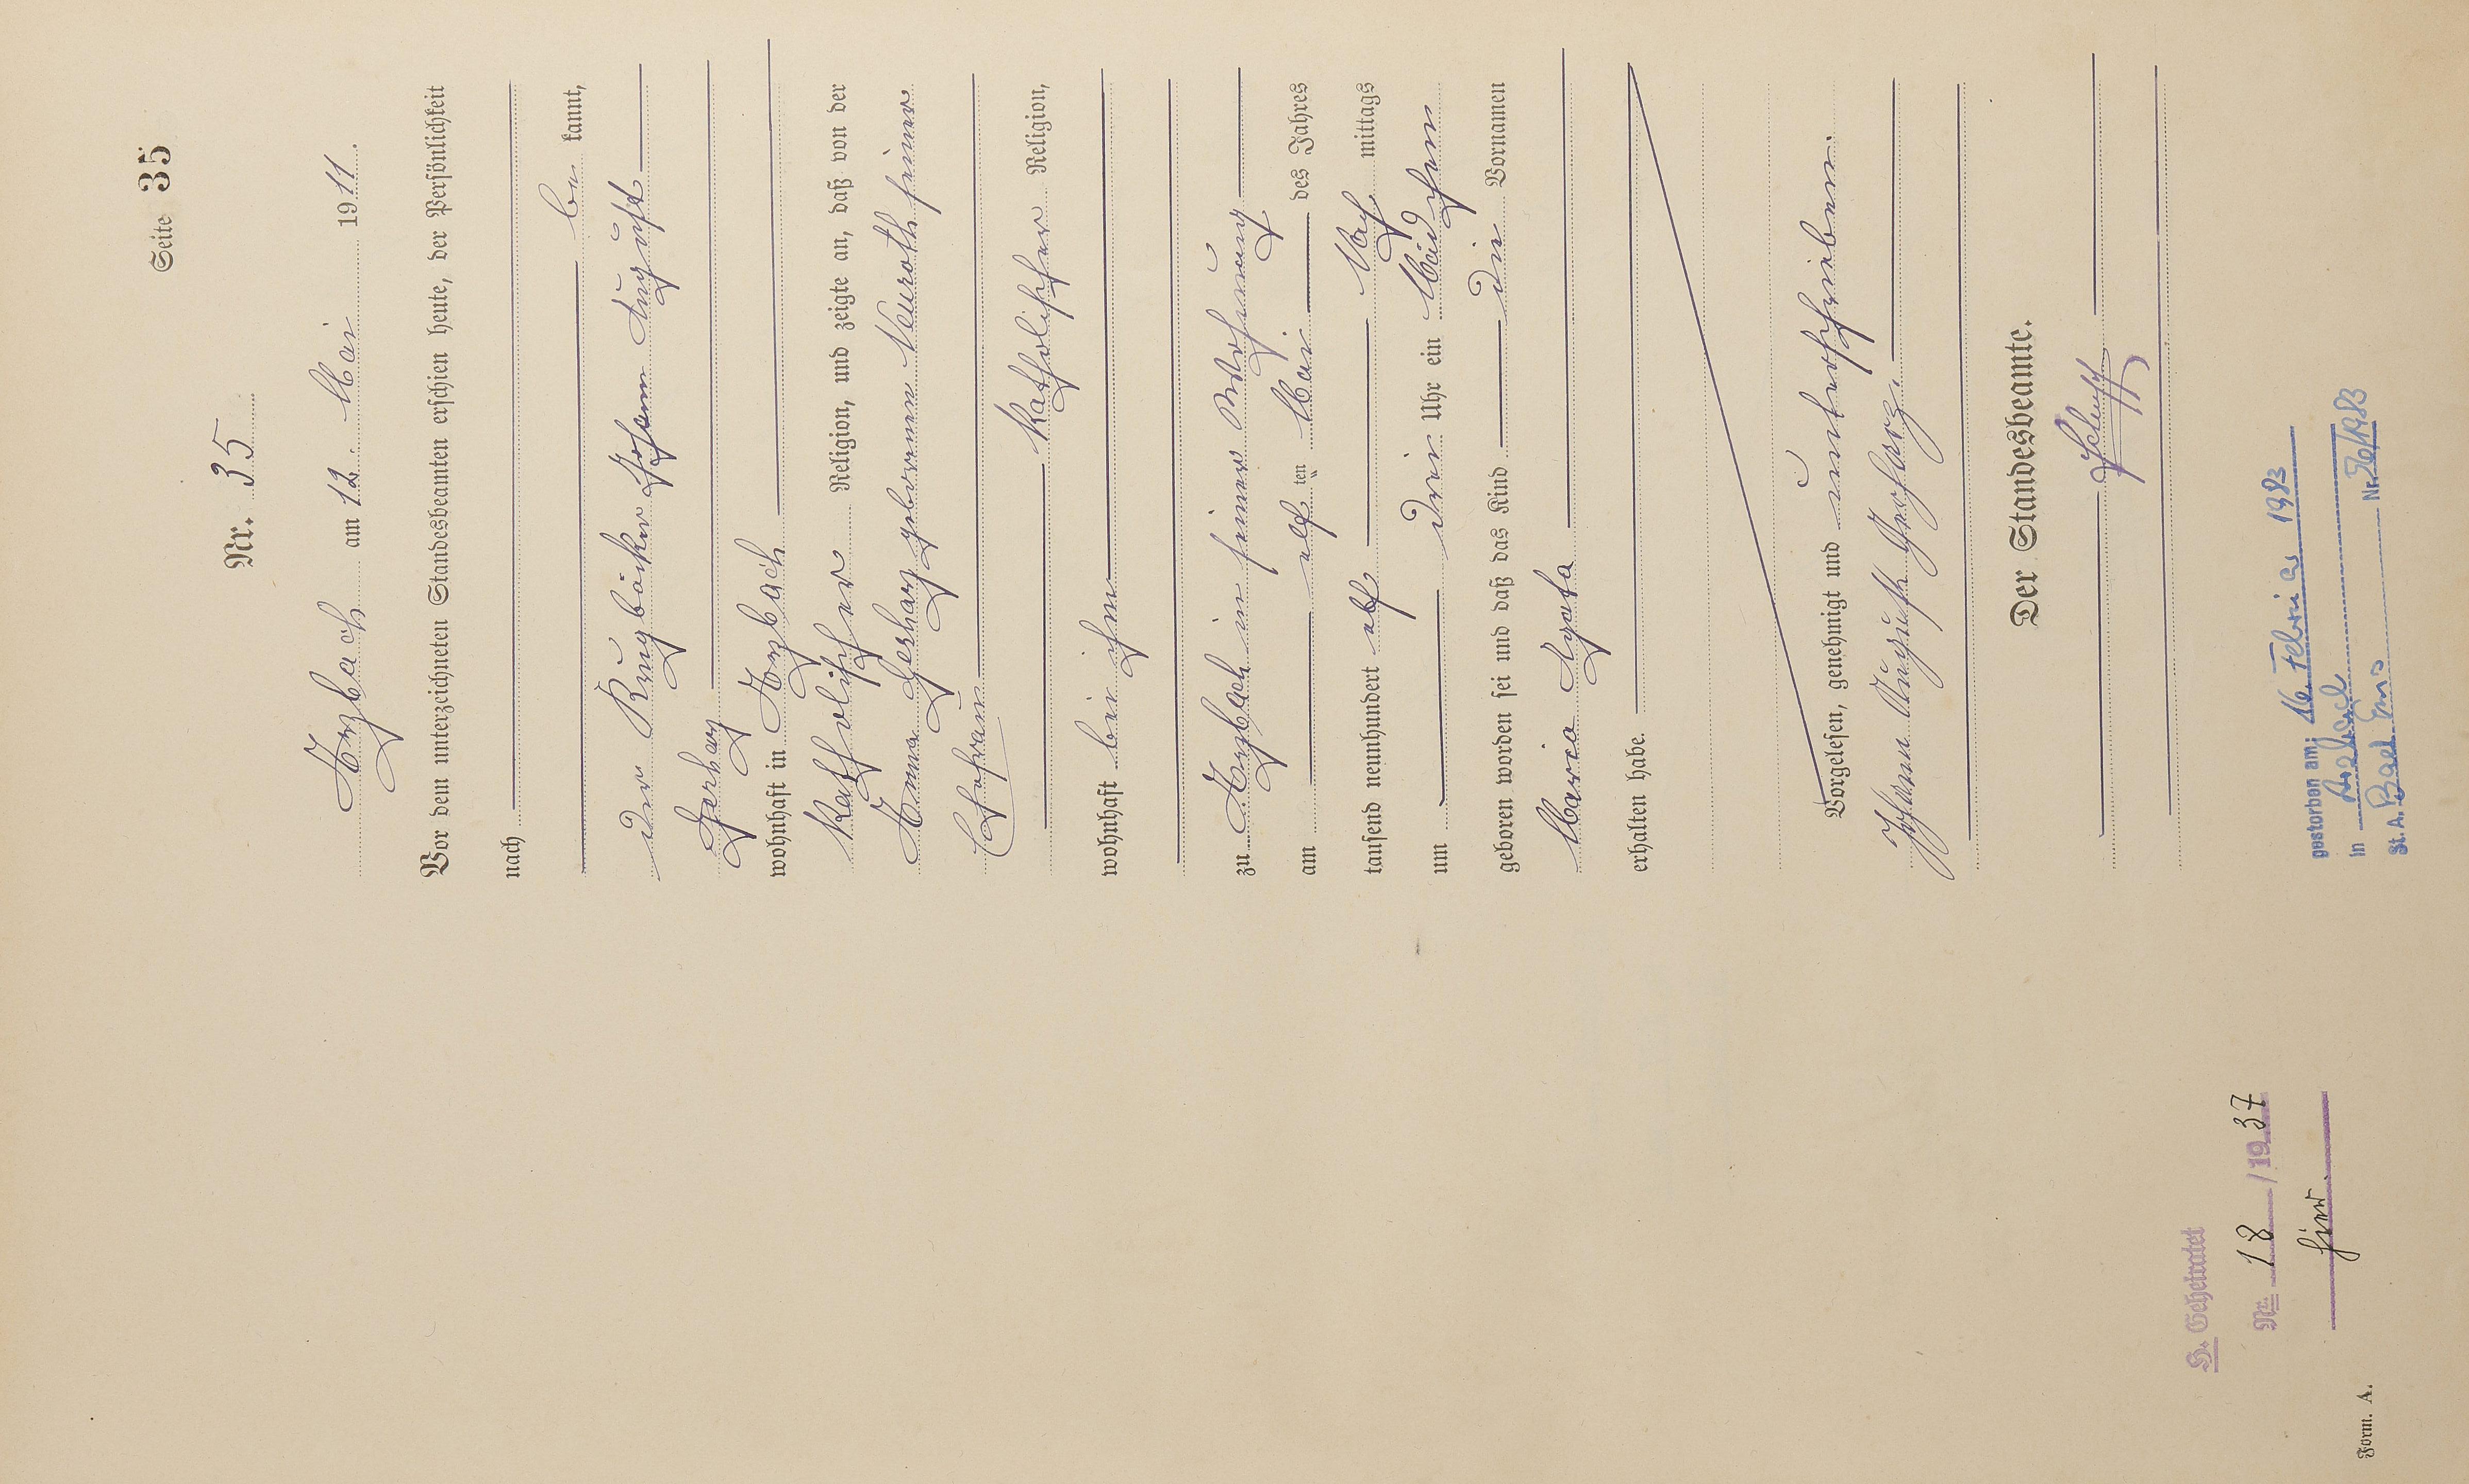 Seite 35
Nr. 35
Arzbach am 12. Mai 1911.
Vor dem unterzeichneten Standesbeamten erschien heute, der Persönlichkeit
nach
be kannt,
der Krugbäcker Johann August
Gerharz
wohnhaft in Arzbach
Katholischer Religion, und zeigte an, daß von der
Anna Gerharz geborenen Neuroth seiner
Ehefrau
Katholischer Religion,
wohnhaft bei ihm
zu Arzbach in seiner Wohnung
am elf ten Mai des Jahres
tausend neunhundert elf Nach mittags
um drei Uhr ein Mädchen
geboren worden sei und daß das Kind die Vornamen
Maria Agata
erhalten habe.
Vorgelesen, genehmigt und unterschrieben.
Johann August Gerharz.
Der Standesbeamte.
gestorben am: 16. Februar 1983
in Arzbach
St. A. Bad Ems Nr. 26/1983
H. Geheiratet
Nr. 18/1937
hier.
Form. A.